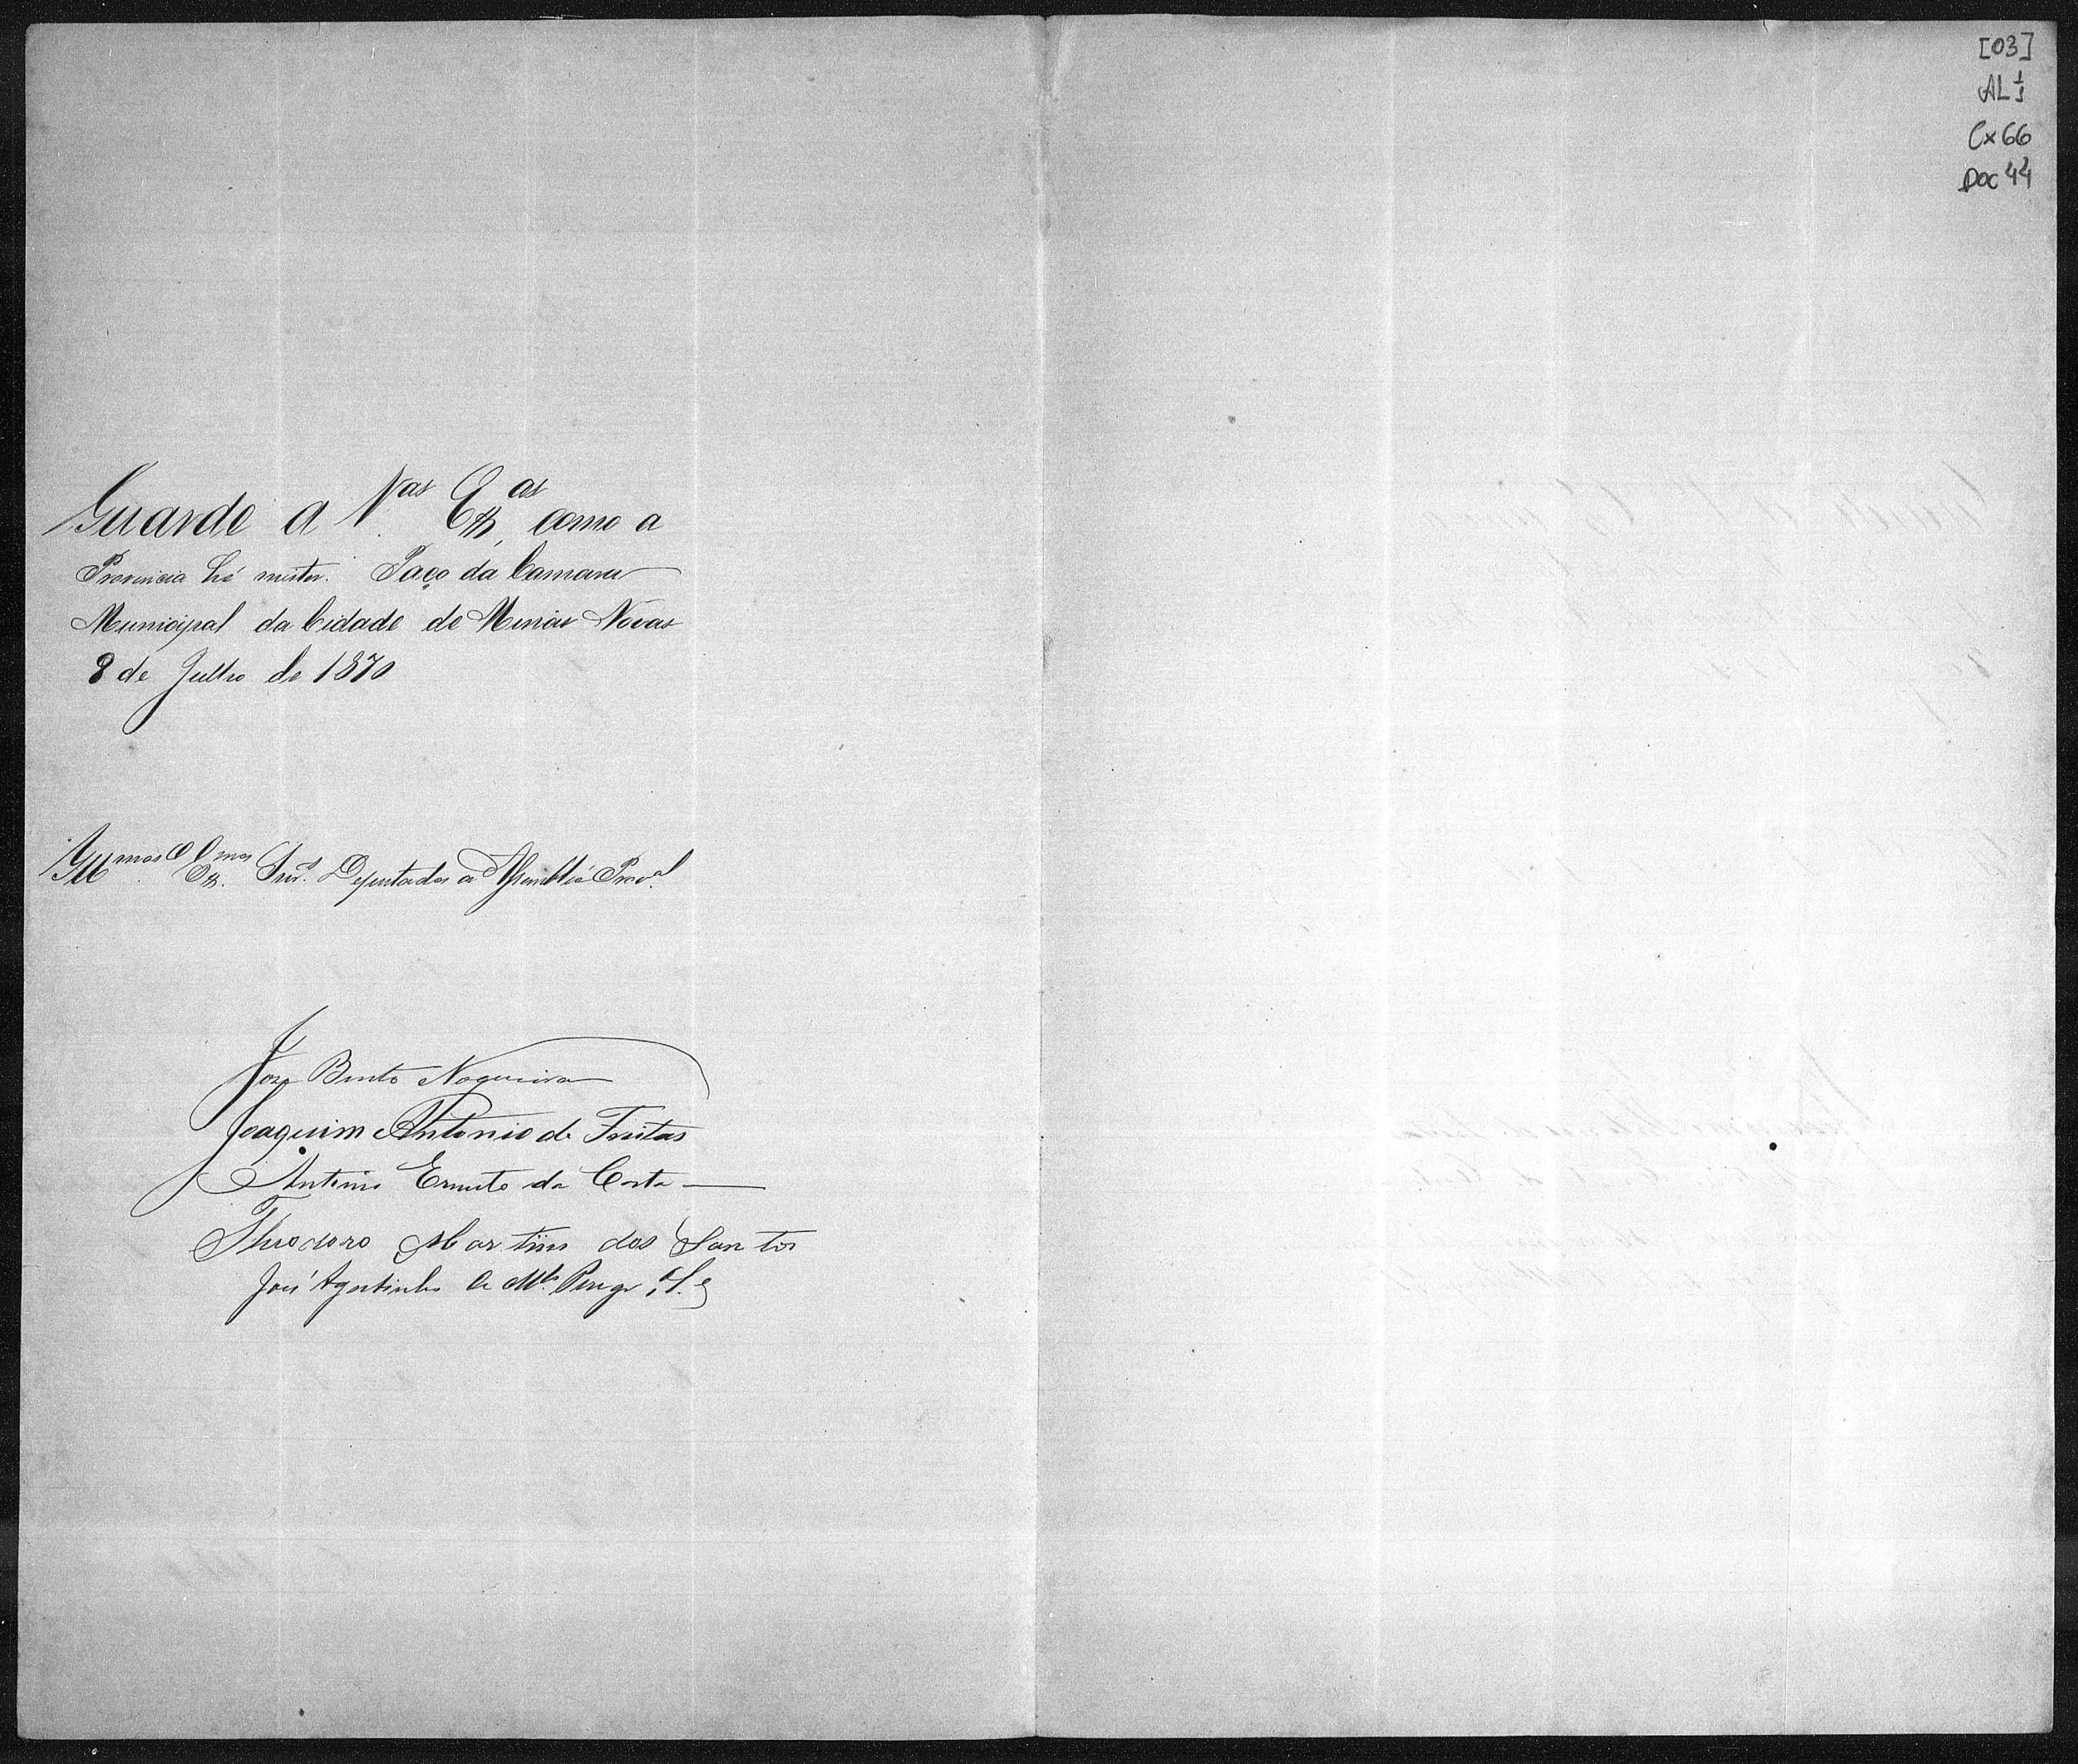 Guarde a V.as Ex.as como a
Provincia hé mister. Paço da Camara
Municipal da Cidade de Minas Novas
8 de Julho de 1870
Ill.mos e Ex.mos Snr.s Deputados a Assembléa Prov.al
José Bento Nogueira
Joaquim Antonio de Freitas
Antonio Ernesto da Costa
Theodoro Martins dos Santos
José Agostinho
[03]
AL 1/3
Cx 66
Doc 44